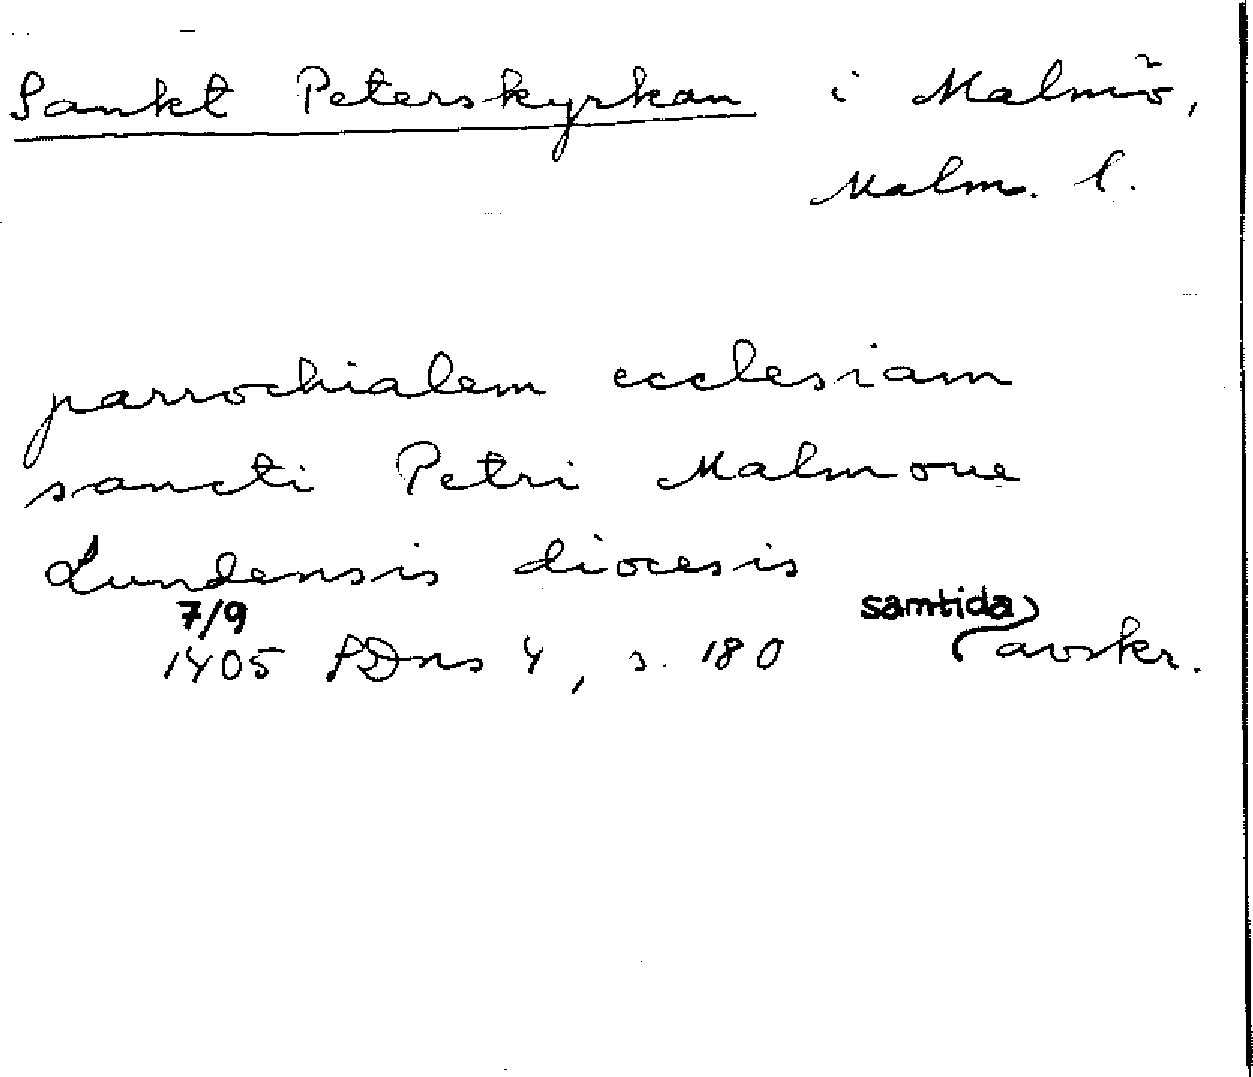 Sankt Peterskyrkan i Malmö,
Malm. l.
parrochialem ecclesiam
sancti Petri Malmoue
Lundensis diocesis
7/9 samtida
1405 SDns 4, s. 180 avskr.